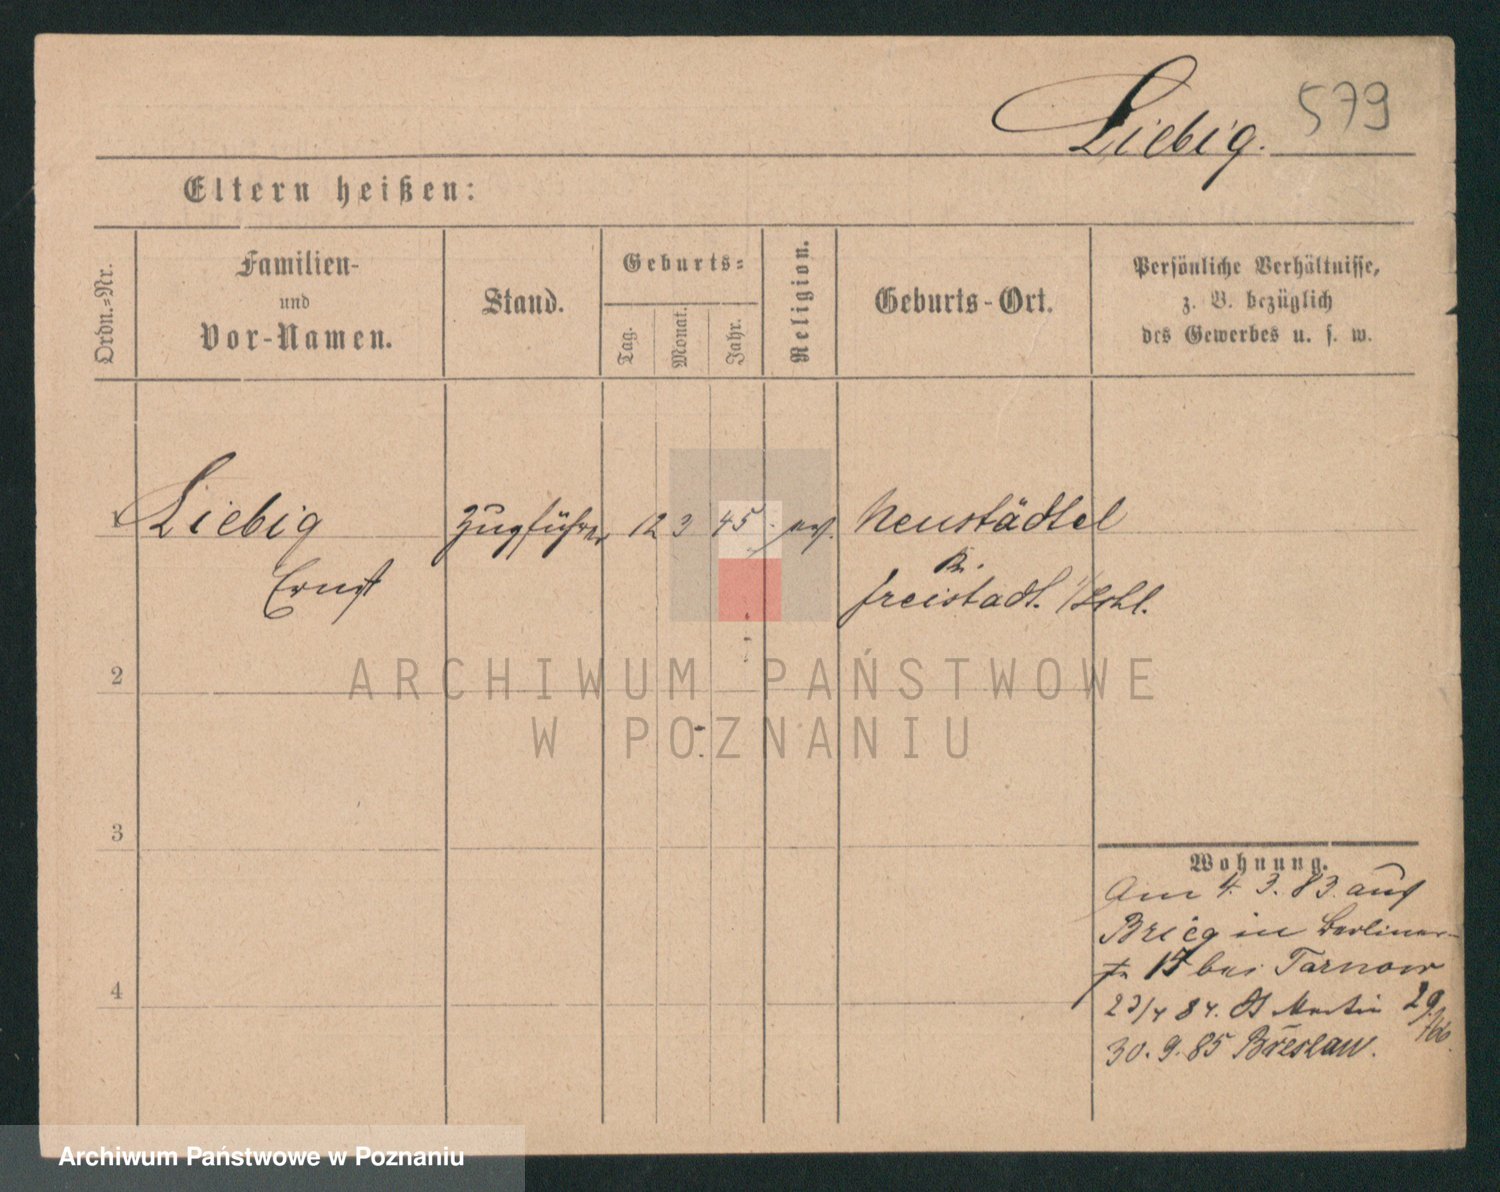 Liebig. 579
Eltern heißen:
Ordn.-Nr.
Familien-
und
Vor-Namen.
Stand.
Geburts-
Tag.
Monat.
Jahr.
Religion.
Geburts-Ort.
Persönliche Verhältnisse,
z. B. bezüglich
des Gewerbes u. s. w.
1 Liebig Zugführer 12 3 45 Neustädtel
Ernst
Freistadt. i/Schl.
2
ARCHIWUM PAŃSTWOWE
W POZNANIU
3
4
Wohnung.
Am 4. 3. 83. aus
Brieg in Berliner-
15 bei Tarnow
23/4 84. St Martin 29
30. 9. 85 Breslau.
Archiwum Państwowe w Poznaniu